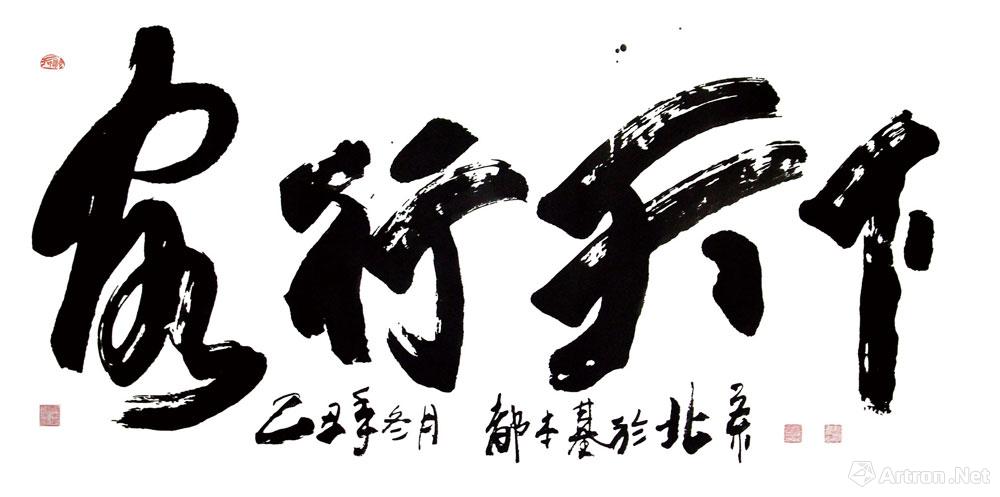 客行天下
己丑年冬月 都本基於北京
Artron.Net